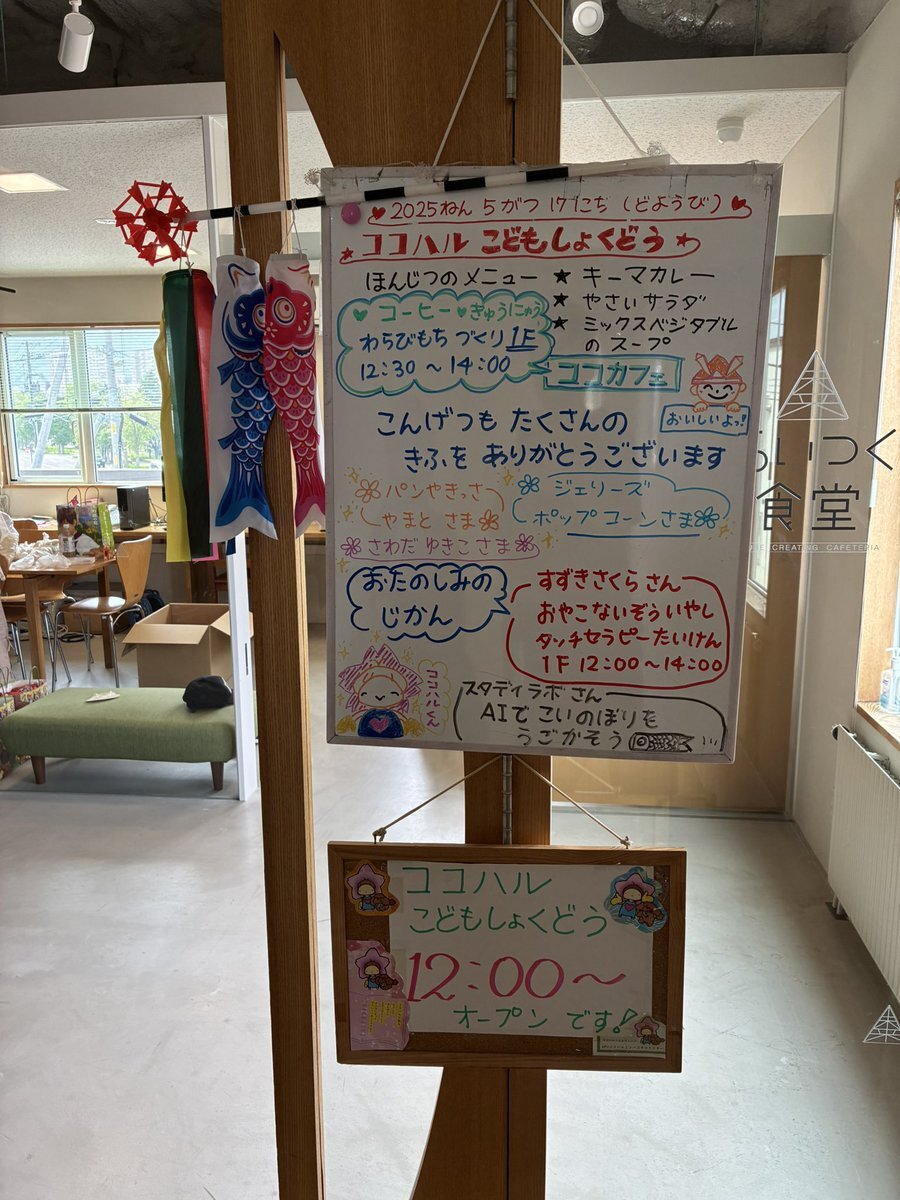 2025ねん 5がつ 17にち (どようび)
ココハル こどもしょくどう
ほんじつのメニュー ★ キーマカレー
★ やさいサラダ
★ ミックスベジタブル
のスープ
コーヒー ぎゅうにゅう
わらびもちづくり 1F
12:30 ~ 14:00
ココカフェ
おいしいよっ!
こんげつも たくさんの
きふを ありがとうございます
パンやきっさ
やまと さま
ジェリーズ
ポップコーンさま
さわだ ゆきこ さま
おたのしみの
じかん
すずきさくら さん
おやこないぞういやし
タッチセラピーたいけん
1F 12:00~14:00
ココハルくん
スタディラボさん
AIで こいのぼりを
うごかそう
いつく
食堂
CREATING CAFETERIA
ココハル
こどもしょくどう
12:00~
オープン です!